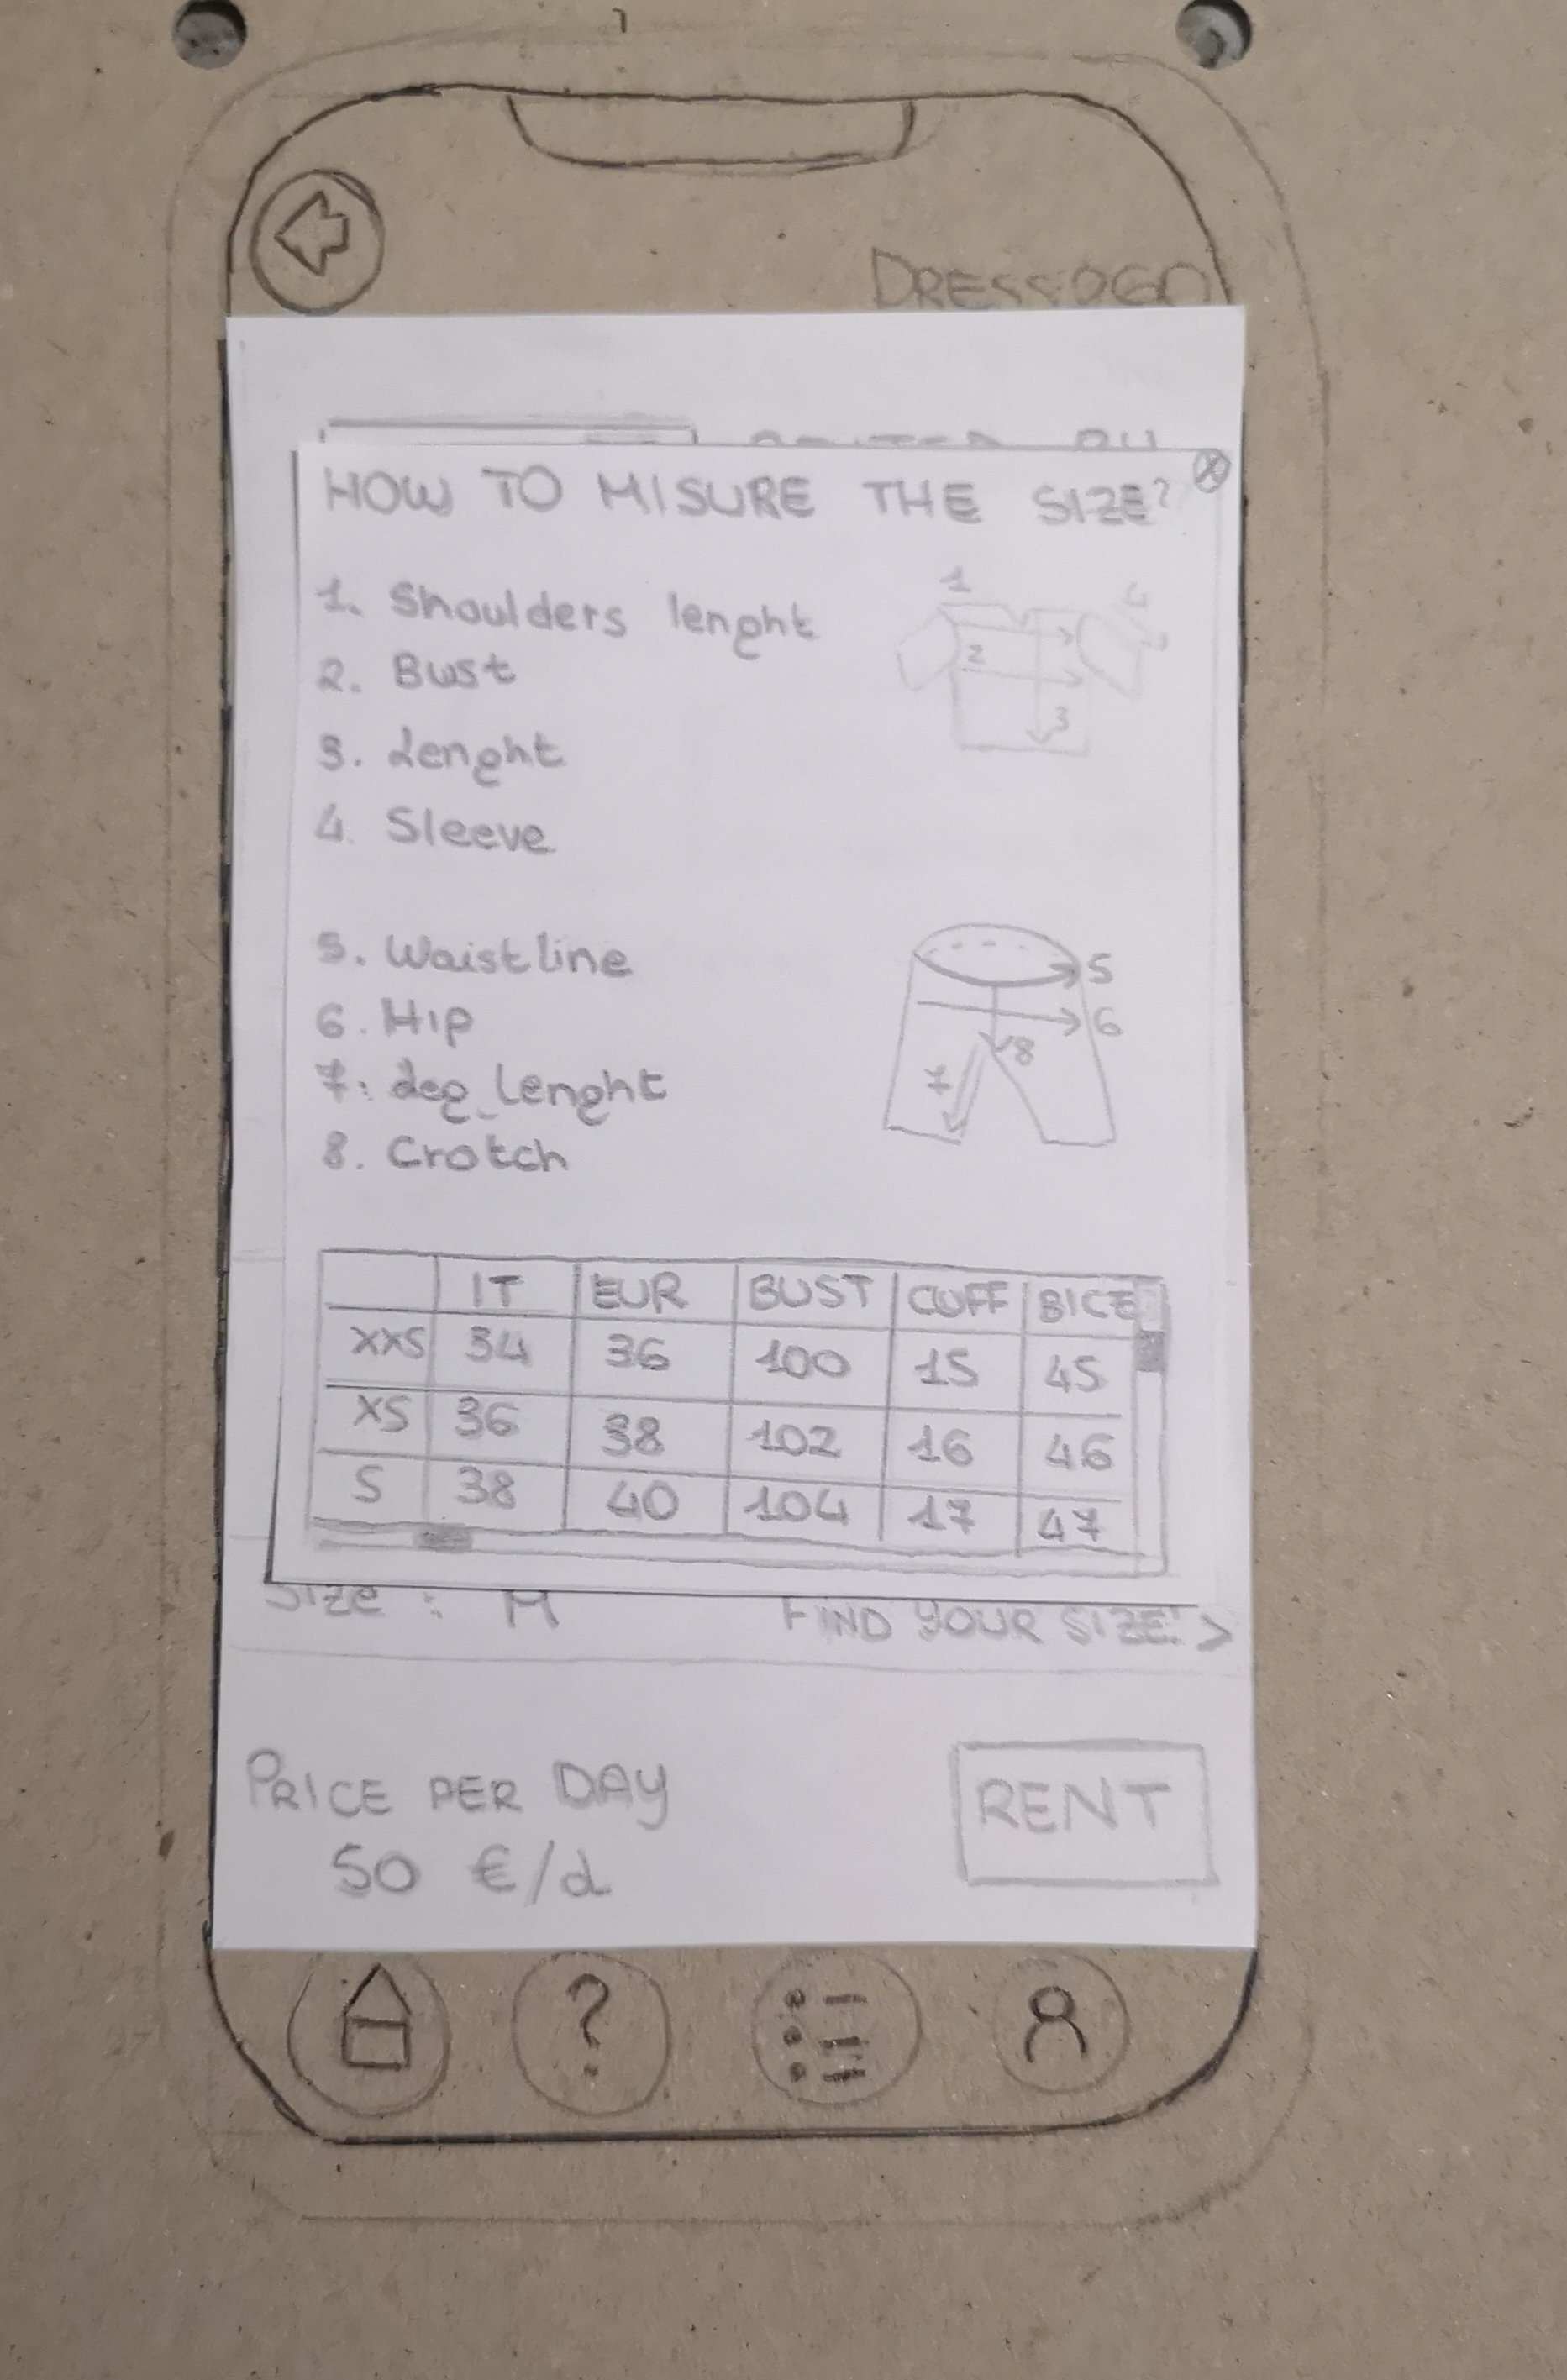 DRESS2GO
HOW TO MISURE THE SIZE?
1. Shoulders lenght
2. Bust
3. Lenght
4. Sleeve
1
4
2
3
5. Waistline
6. Hip
7. Leg lenght
8. Crotch
5
6
8
7
IT EUR BUST CUFF BICE
XXS 34 36 100 15 45
XS 36 38 102 16 46
S 38 40 104 17 47
Size : M FIND YOUR SIZE! >
PRICE PER DAY
50 €/d
RENT
?